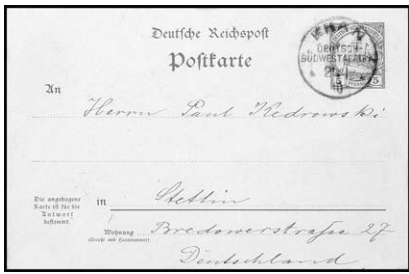 Deutsche Reichspost
Postkarte
KHAN
DEUTSCH-
SÜDWESTAFRIKA
10
5
An
Herrn Paul Kedrowski
Die angebogene
Karte ist für die
Antwort
bestimmt.
in Stettin
Wohnung
(Straße und Hausnummer)
Bredowerstraße 27
Deutschland